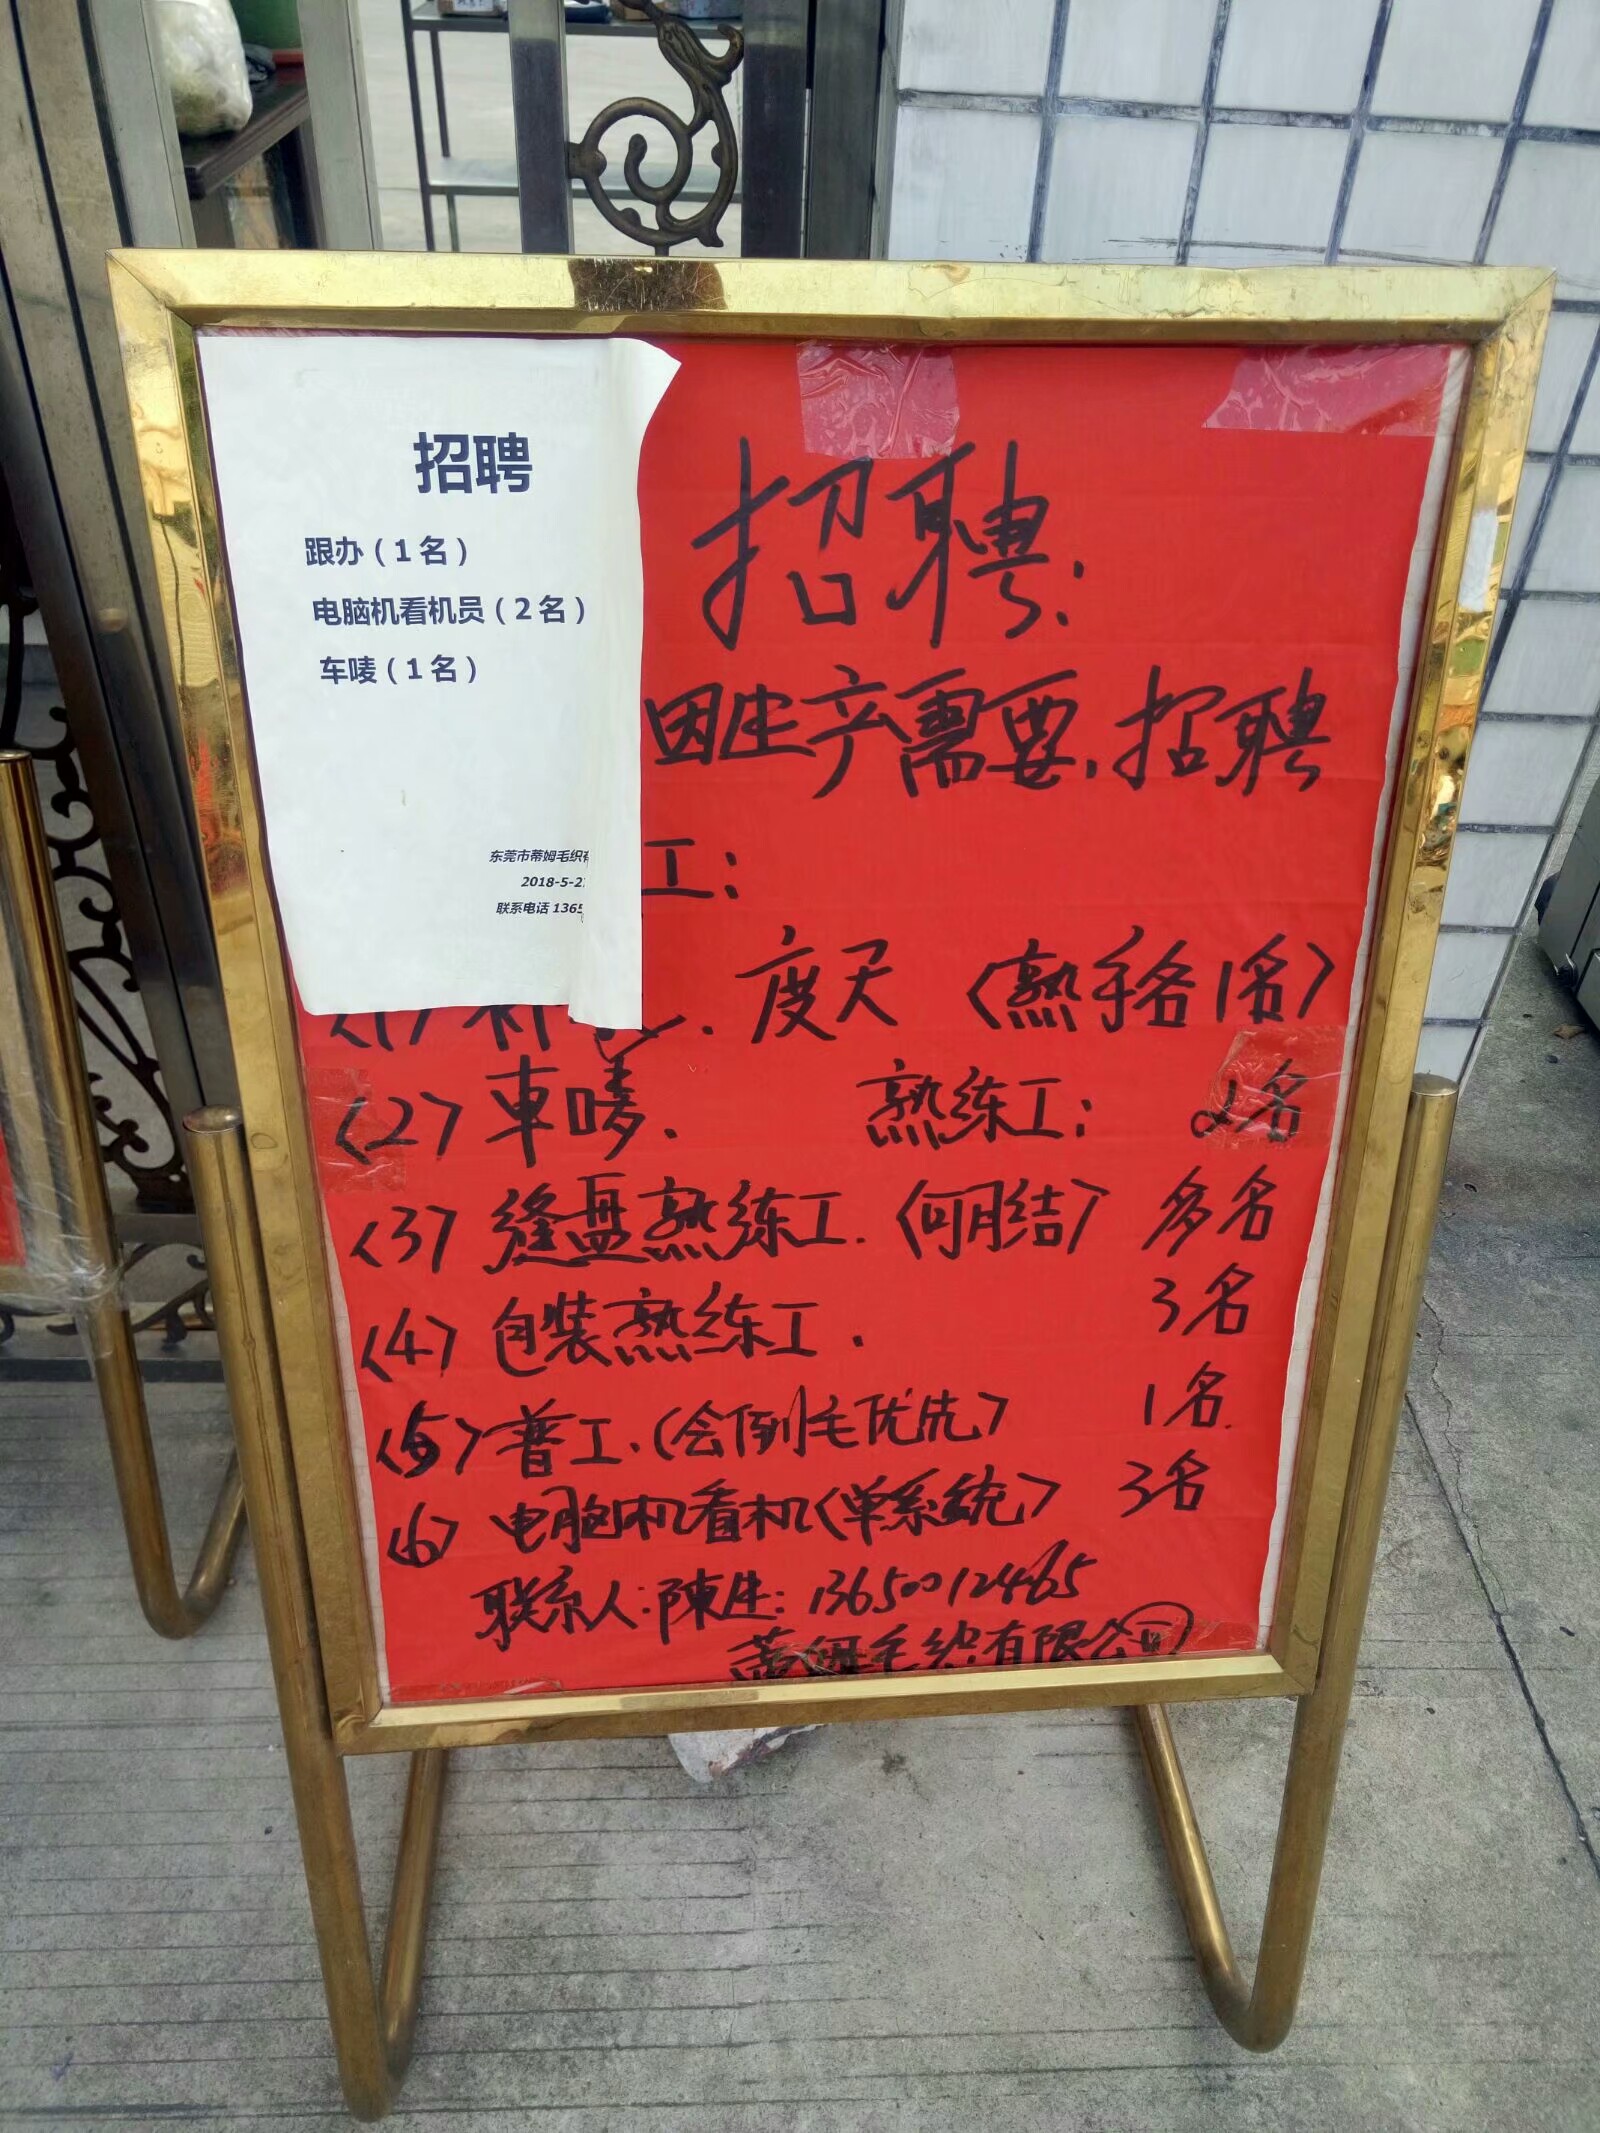 招聘
跟办（1名）
电脑机看机员（2名）
车唛（1名）
东莞市蒂姆毛织
2018-5-2
联系电话 1365
招聘:
因生产需要,招聘
工:
<1> 补 . 度天 <熟手各1名>
<2> 車唛. 熟练工: 2名
<3> 缝盘熟练工. <可月结> 多名
<4> 包装熟练工. 3名
<5> 普工.(会倒毛优先> 1名.
<6> 电脑机看机<单系统> 3名
联系人:陳生: 13650012465
蒂姆毛织有限公司